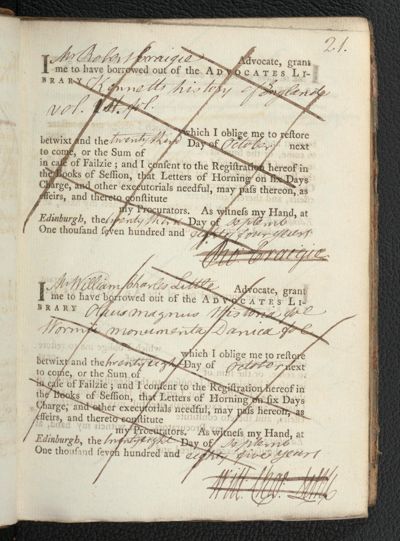 21.
I Mr Robert Craigie Advocate, grant
me to have borrowed out of the ADVOCATES LI-
BRARY Kennetts history of England
vol. 1st. fol.
which I oblige me to restore
betwixt and the twenty third Day of October next
to come, or the Sum of
in case of Failzie; and I consent to the Registration hereof in
the Books of Session, that Letters of Horning on six Days
Charge, and other executorials needful, may pass thereon, as
effeirs, and thereto constitute
my Procurators. As witness my Hand, at
Edinburgh, the twenty third Day of Septemb
One thousand seven hundred and eighty four years
Craigie
I Mr William Charles Little Advocate, grant
me to have borrowed out of the ADVOCATES LI-
BRARY Olaus magnus Historia fol
Wormii monumenta Danica fol
which I oblige me to restore
betwixt and the twenty eight Day of October next
to come, or the Sum of
in case of Failzie; and I consent to the Registration hereof in
the Books of Session, that Letters of Horning on six Days
Charge, and other executorials needful, may pass hereon, as
effeirs, and thereto constitute
my Procurators. As witness my Hand, at
Edinburgh, the twenty eight Day of Septemb
One thousand seven hundred and eighty five years
Will: Chas. Little